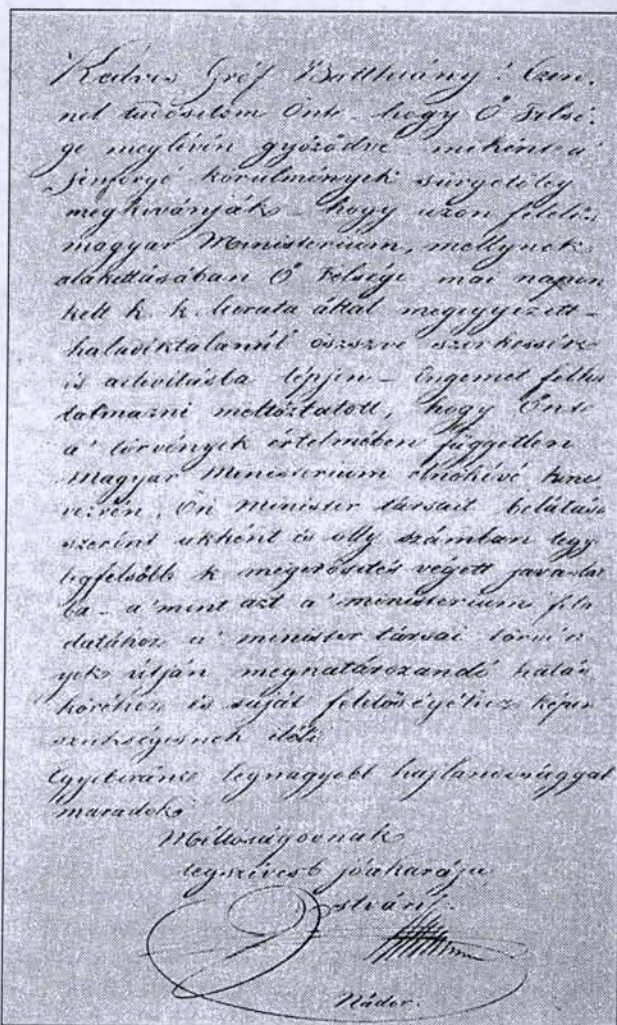 Kedves Gróf Batthyány! Ezen-
nel tudósítom Önt – hogy Ő Felsé-
ge meglévén győződve – miként a'
fenforgó körülmények sürgetőleg
megkivánják – hogy azon felelős
magyar Ministerium, mellynek
alakittásában Ő Felsége mai napon
kelt k. k. leirata által megegyezett –
haladéktalanúl öszszve szerkesztve
is activitásba lépjen – Engemet felha
talmazni méltóztatott, hogy Önt
a' törvények értelmében független
Magyar Ministerium elnökévé kine
vezvén, Ön minister társait belátása
szerint akként és olly számban legy
legfelsőbb k. megerősités végett javaslat
ba – a' mint azt a' ministerium fela
datához a' minister társai törvén
yek útján meghatározandó hatás
köréhez és saját felelőségéhez képest
szükségesnek
Egyébiránt legnagyobb hajlandósággal
maradok
Méltóságodnak
legszivesb jóakarója
István
Nádor.